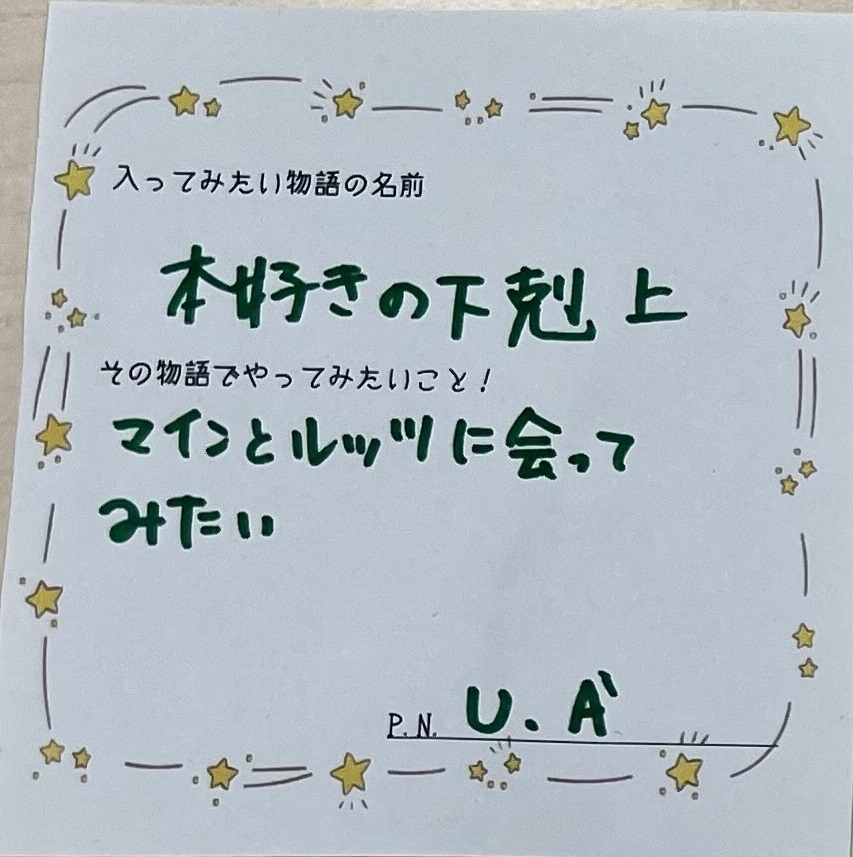 入ってみたい物語の名前
本好きの下剋上
その物語でやってみたいこと!
マインとルッツに会って
みたい
P.N. U.A